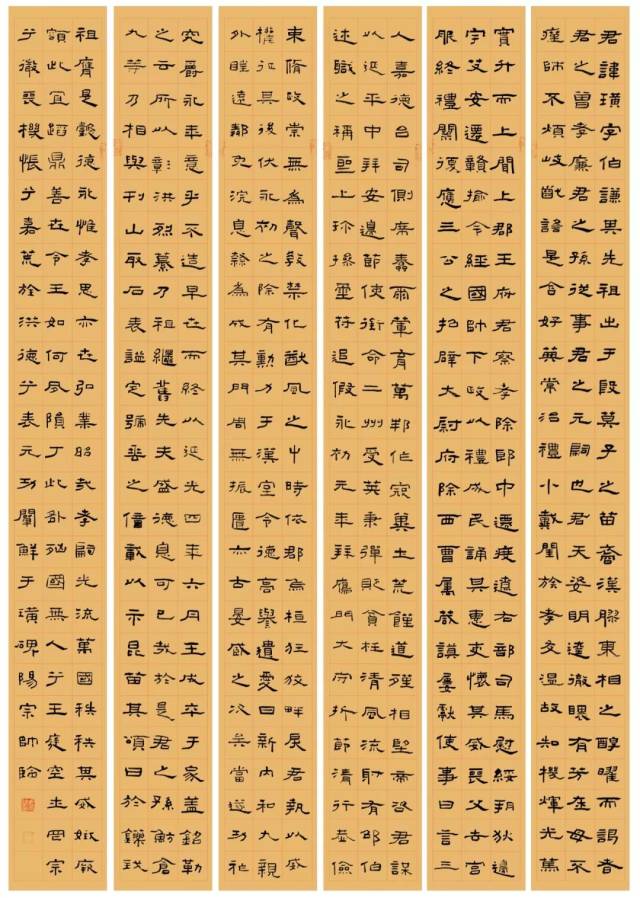 君諱璜字伯謙其先祖出于殷箕子之苗裔漢膠東相之醇曜而謁者
君之曾孝廉君之孫從事君之元嗣也君天姿明達徹覩有芳在母不
瘽師不煩歧嶷謠是含好典常治禮小戴閨族孝友溫故知機煇光篤
實升而上聞上郡王府君察孝除郎中遷度遼右部司馬慰綏朔狄邊
宇艾安遷贛榆令經國帥下政以禮成民誦其惠吏懷其威喪父去官
服終禮闋復應三公之招辟大尉府除西曹屬蔵謨屢獻使事日言三
人嘉德台司側席爾葷育萬邦作寇冀土荒饉道殣相望帝咨君謀
以延平中拜安邊節使銜命二州受英秉彈貶貪枉清風流射有邵伯
述職之稱聖上珍操璽符追假永初元年拜鴈門大守折節清行恭儉
束脩政崇無為聲教禁化猷風之中時依郡烏桓狂狡畔戾君執以威
權征其後伏永初之除有勳力于漢室令德高舉遺愛日新內和九親
外睦遠鄰免浣息隸為成其門周無振匱亦古晏臧之次矣當遂功祉
究爵永年意乎不造早世而終以延光四年六月壬戌卒于家蓋銘勒
之云所以彰洪烈纂乃祖繼舊先夫盛德息可已哉於是君之孫魴倉
九等乃相與刊山取石表謚定號垂之億載以示昆苗其頌曰於鑠我
祖膺是懿德永惟孝思亦世弘業昭哉孝嗣光流萬國秩秩其威娥厥
頌此宜蹈鼎善世令王如何夙隕丁此咎殃國無人兮王庶空土罔宗
兮微喪機悵兮嘉慕於洪德兮表元功闡鮮于璜碑陽宗帥臨